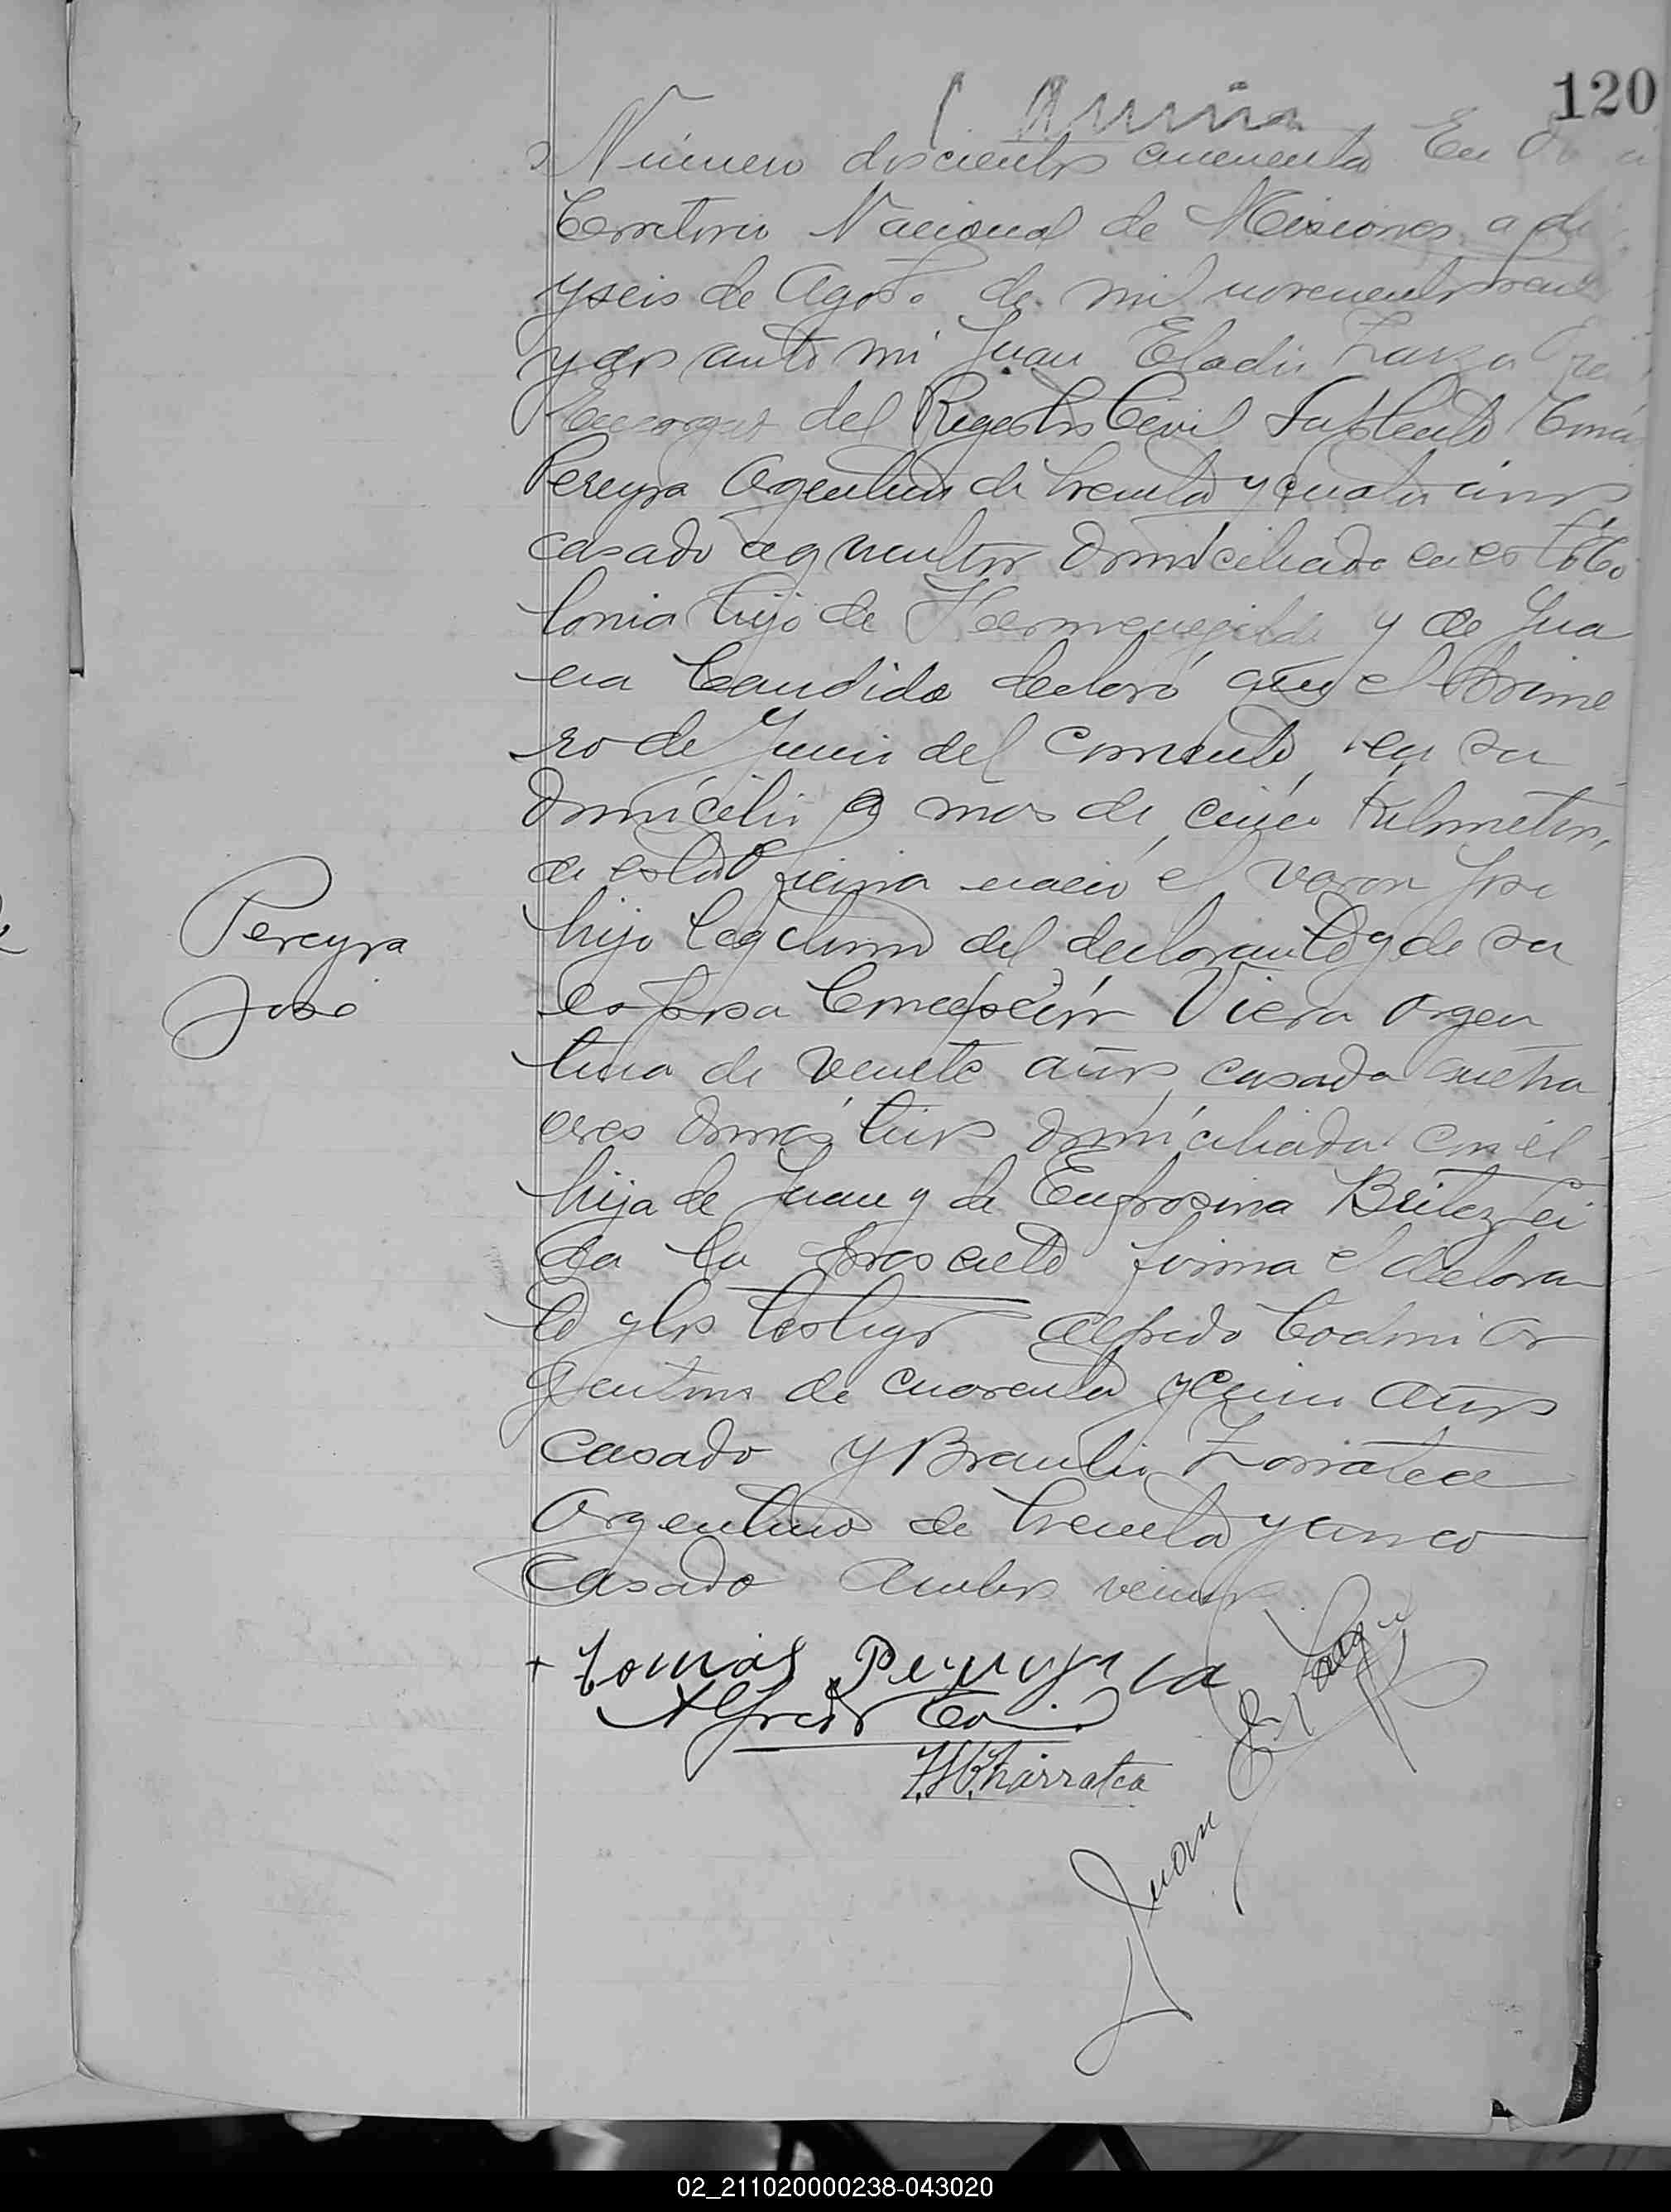 120
Número doscientos cincuenta En
Territorio Nacional de Misiones a di
yseis de Agosto de mil novecientos trein
y dos ante mi Juan Eladio
Encargado del Registro Civil Suplente Tomás
Pereyra Argentino de treinta y cuatro años
casado agricultor domiciliado en esta Co
lonia hijo de Hermenegildo y de Jua
na Candida declaró que el prime
ro de Junio del corriente, en su
domicilio a mas de cinco kilometros,
de esta Oficina nació el varon José
Pereyra
José
hijo legitimo del declarante y de su
esposa Concepción Viera Argen
tina de veinte años casada queha
ceres domésticos domiciliada con él
hija de Juan y de Eufrosina Britez Lei
da la presente firma el declaran
te y los testigos Alfredo Codmi Ar
gentino de cuarenta y cinco años
casado y Braulio Zarratea
Argentino de treinta y cinco
casado Ambos vecinos
+ tomás Pereyra
Alfredo
Juan E.